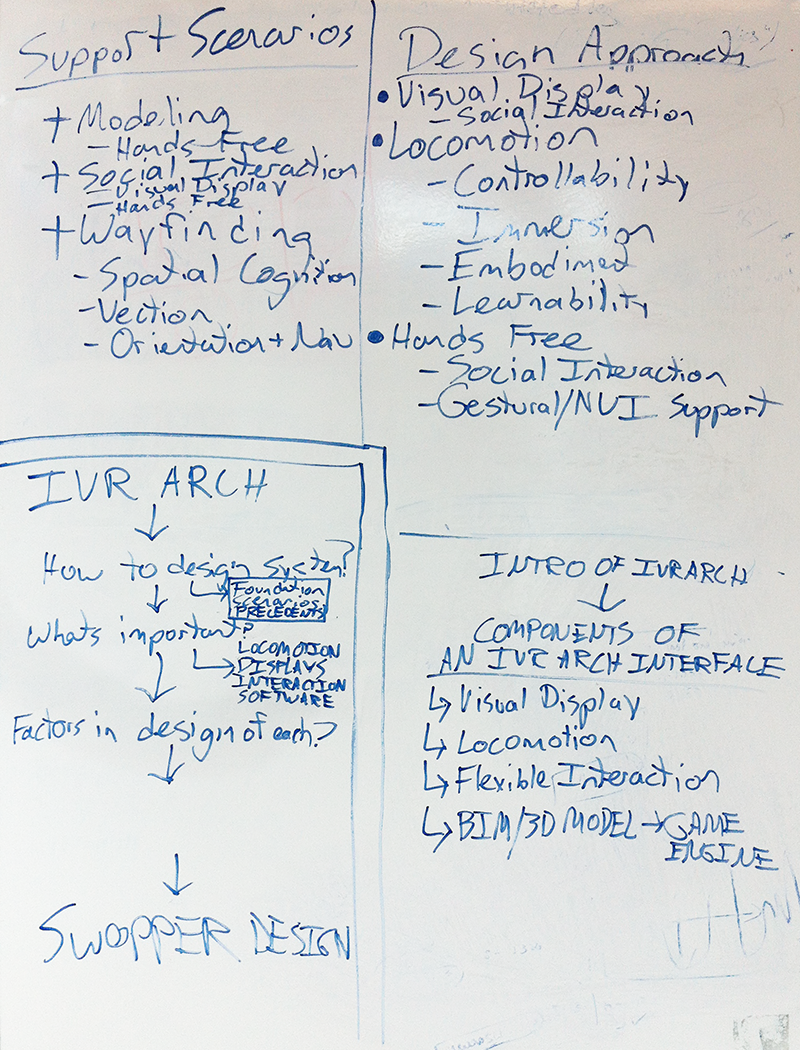 Support Scenarios
+ Modeling
- Hands-Free
+ Social Interaction
- Visual Display
- Hands Free
+ Wayfinding
- Spatial Cognition
- Vection
- Orientation + Nav
Design Approach
• Visual Display
- Social Interaction
• Locomotion
- Controllability
- Immersion
- Embodiment
- Learnability
• Hands Free
- Social Interaction
- Gestural/NUI Support
IVR ARCH
↓
How to design system?
↓ ↳ Foundation
scenarios
PRECEDENTS
Whats important?
↓ ↳ LOCOMOTION
DISPLAYS
INTERACTION
SOFTWARE
Factors in design of each?
↓
↓
SWOPPER DESIGN
INTRO OF IVR ARCH
↓
COMPONENTS OF
AN IVR ARCH INTERFACE
↳ Visual Display
↳ Locomotion
↳ Flexible Interaction
↳ BIM/3D MODEL → GAME
ENGINE